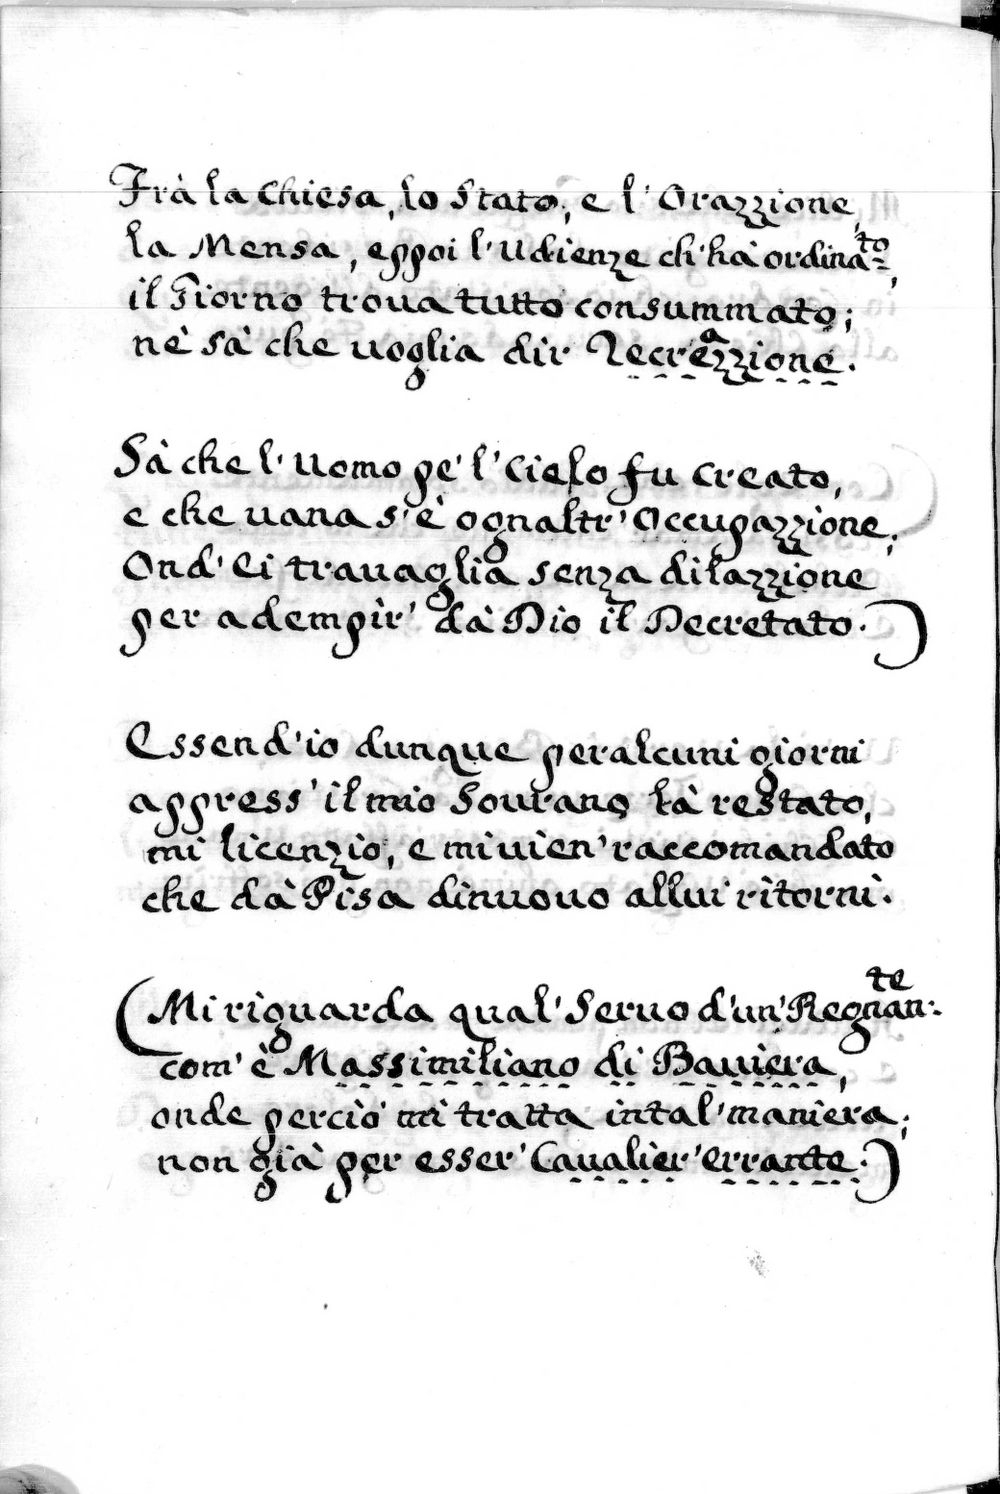 Frà la Chiesa, lo Stato, e l' Orazzione,
la Mensa, eppoi l'Udienze ch'hà ordinato:,
il Giorno troua tutto consummato;
nè sà che uoglia dir Recreazzione.
Sà che l'Uomo pe' l' Cielo fu creato,
e che uana s'è ognaltr' Occupazzione,
Ond' Ei trauaglia senza dilazzione
per adempir' dà Dio il Decretato.)
Essend'io dunque peralcuni giorni
appress' il mio Sourano là restato,
mi licenzio, e miuien' raccomandato
che dà Pisa dinuouo allui ritorni.
(Mi riguarda qual' Seruo d'un' Regnante:
com' è Massimiliano di Bauiera,
onde perciò mi tratta intal' maniera;
non già per esser' Caualier' errante.)